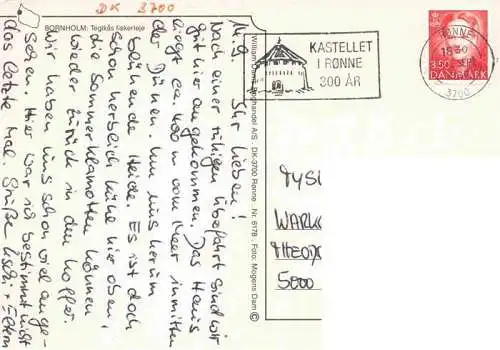 DK 3700
BORNHOLM: Teglkås fiskerleje
M.g. Ihr Lieben!
Nach einer ruhigen Überfahrt sind wir
gut hier angekommen. Das Haus
liegt ca 400 m vom Meer inmitten
der Dünen. Um uns herum
blühende Heide. Es ist doch
schon herblich kühl hier oben;
die Sommerklamotten können
wieder zurück in den Koffer.
Wir haben uns schon viel ange-
sehen. Hier war ich bestimmt nicht
das letzte Mal. Grüße + Eltern
William Dams Boghandel A/S · DK-3700 Rønne · Nr. 6178 · Foto: Mogens Dam ©
KASTELLET
I RØNNE
300 ÅR
RØNNE
3700
3.50
DANMARK
TYSK
WARK
THEOD
5000